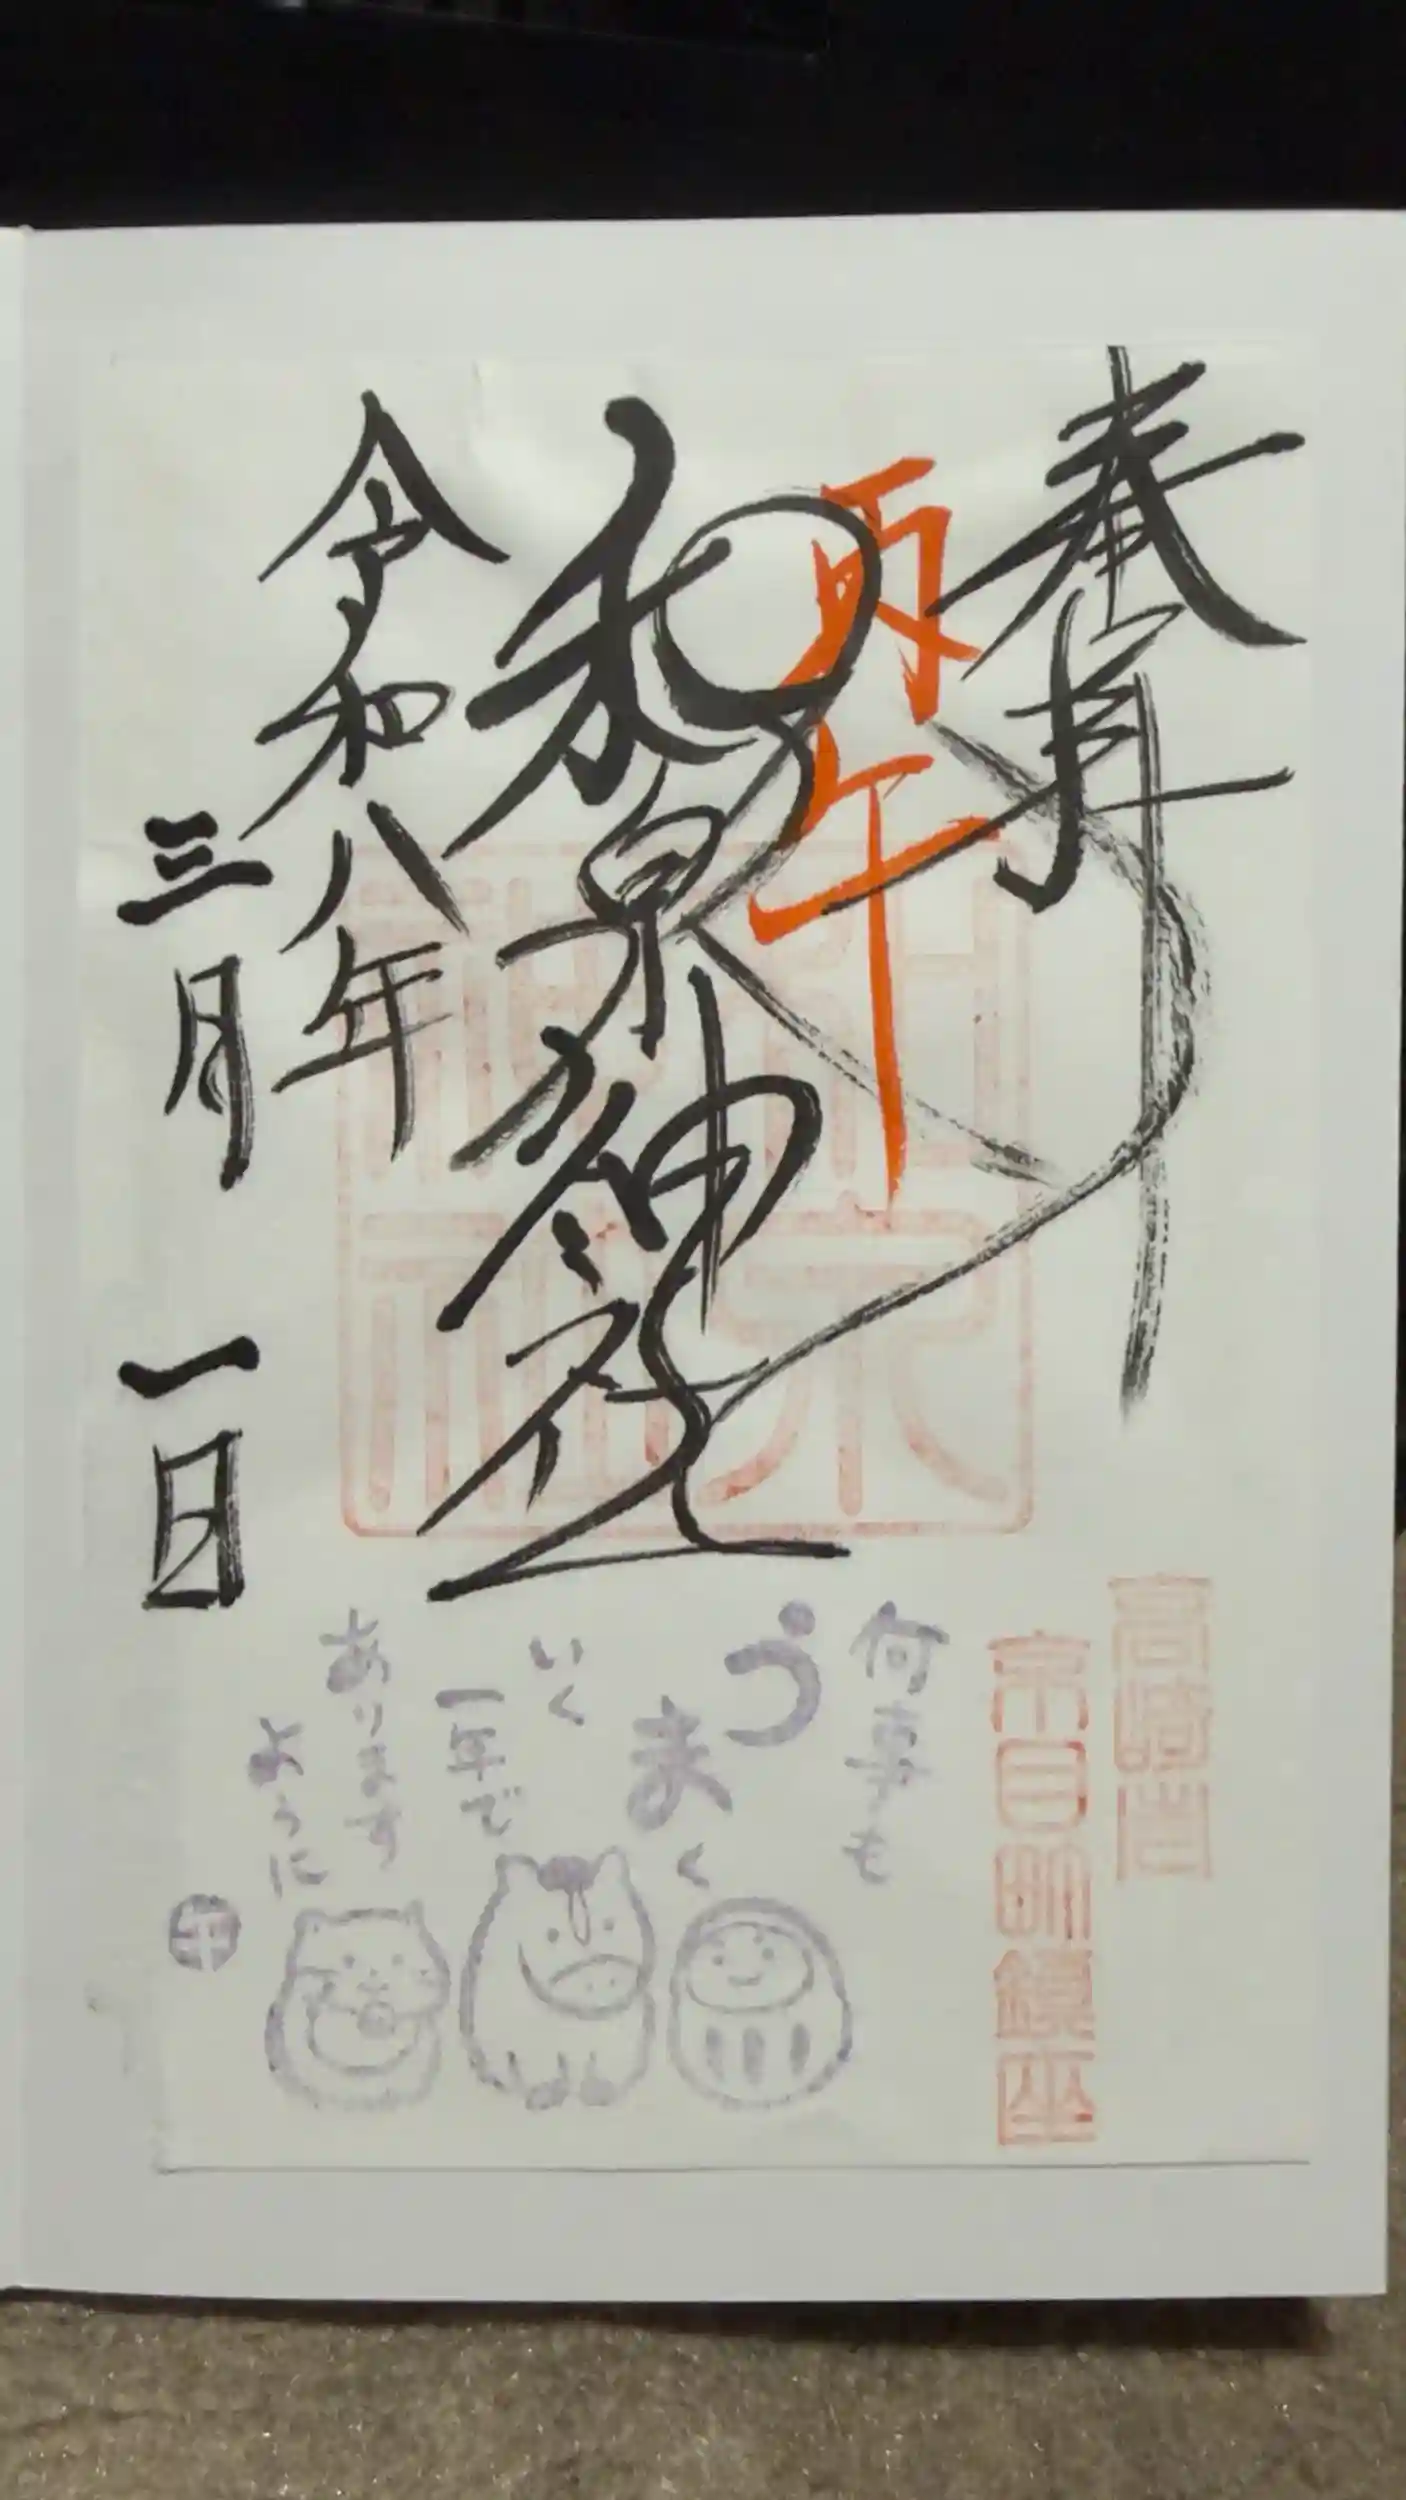 奉拝
丙午
和泉神社
令和八年
三月一日
和泉
神社
高崎岩
京目町鎮座
何事も
うまく
いく
一年で
あります
ように